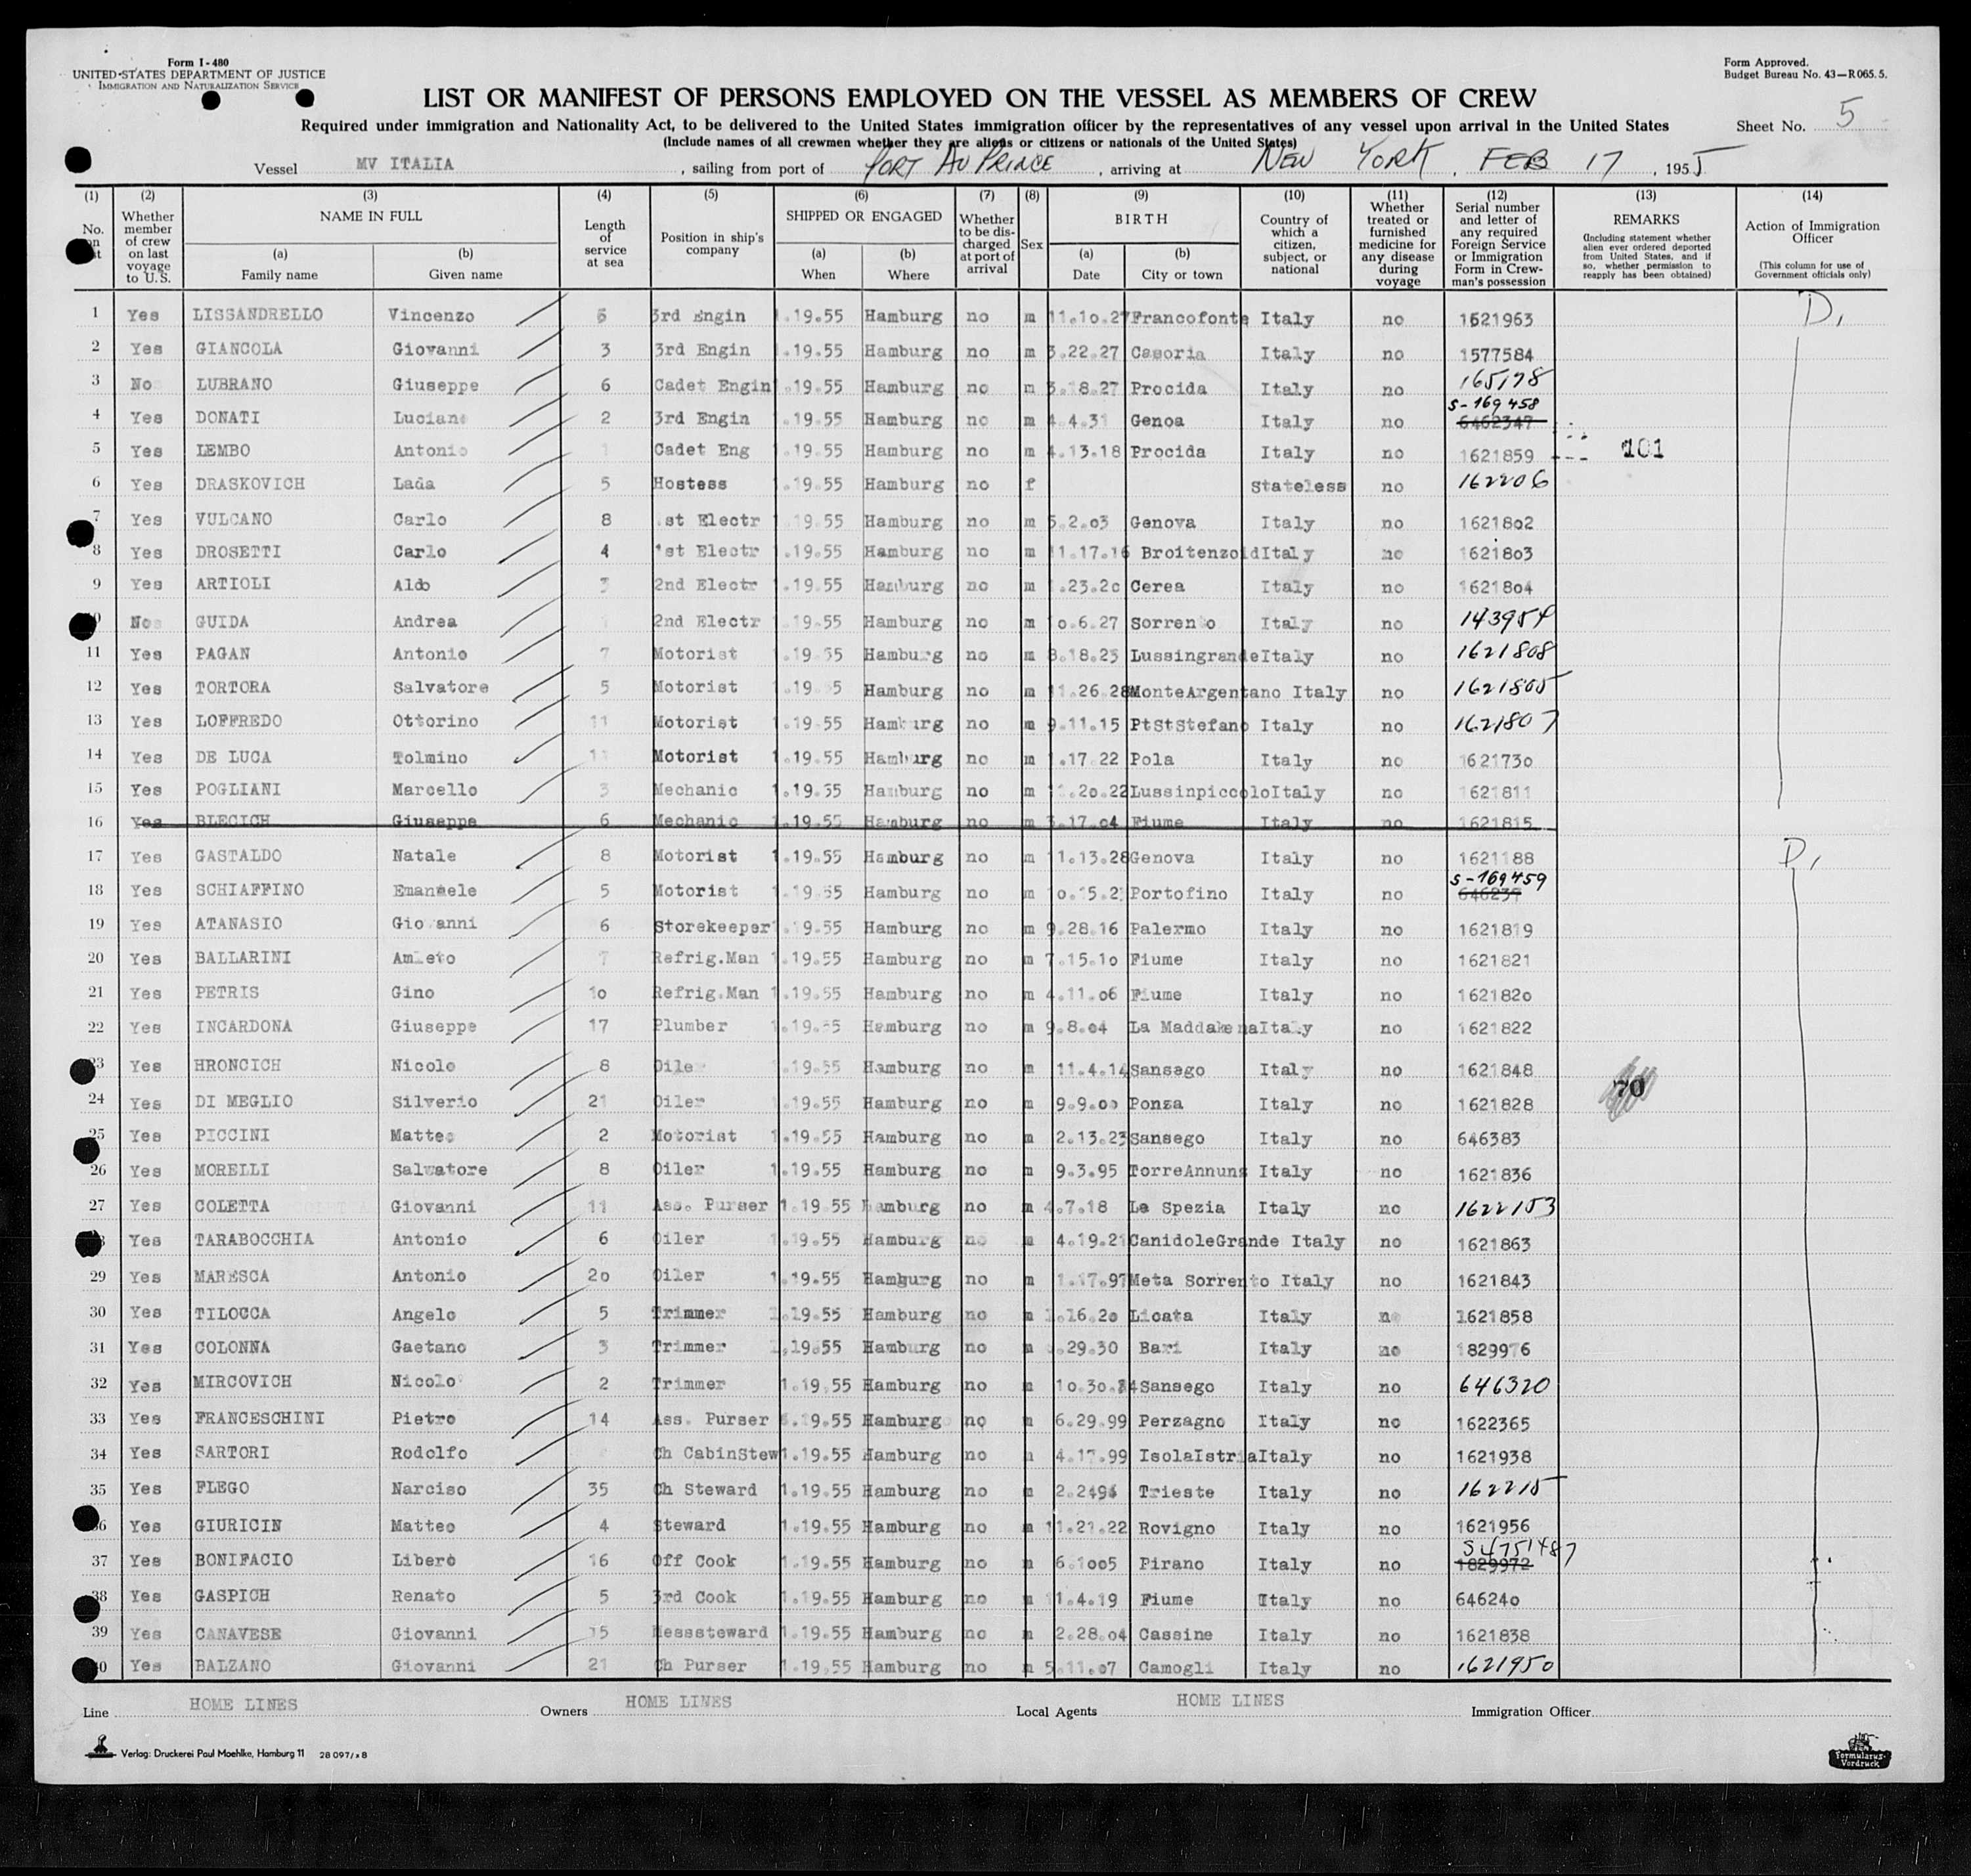 Form I-480
UNITED STATES DEPARTMENT OF JUSTICE
IMMIGRATION AND NATURALIZATION SERVICE
Form Approved.
Budget Bureau No. 43—R065.5.
LIST OR MANIFEST OF PERSONS EMPLOYED ON THE VESSEL AS MEMBERS OF CREW
Required under immigration and Nationality Act, to be delivered to the United States immigration officer by the representatives of any vessel upon arrival in the United States
Sheet No. 5
(Include names of all crewmen whether they are aliens or citizens or nationals of the United States)
Vessel MV ITALIA, sailing from port of PORT AU PRINCE, arriving at NEW YORK, FEB 17, 1955
(1) No. on
(2) Whether member of crew on last voyage to U.S.
(3) NAME IN FULL (a) Family name (b) Given name
(4) Length of service at sea
(5) Position in ship's company
(6) SHIPPED OR ENGAGED (a) When (b) Where
(7) Whether to be discharged at port of arrival
(8) Sex
(9) BIRTH (a) Date (b) City or town
(10) Country of which a citizen, subject, or national
(11) Whether treated or furnished medicine for any disease during voyage
(12) Serial number and letter of any required Foreign Service or Immigration Form in Crewman's possession
(13) REMARKS (Including statement whether alien ever ordered deported from United States, and if so, whether permission to reapply has been obtained)
(14) Action of Immigration Officer (This column for use of Government officials only)
1 Yes LISSANDRELLO Vincenzo 3rd Engin .19.55 Hamburg no m 11.10.27 Francofonte Italy no 1621963 D,
2 Yes GIANCOLA Giovanni 3 3rd Engin .19.55 Hamburg no m 3.22.27 Casoria Italy no 1577584
3 No LUBRANO Giuseppe 6 Cadet Engin .19.55 Hamburg no m 3.18.27 Procida Italy no 165178
4 Yes DONATI Luciano 2 3rd Engin .19.55 Hamburg no m 4.4.31 Genoa Italy no S-169458 6462347
5 Yes LEMBO Antonio Cadet Eng .19.55 Hamburg no m 4.13.18 Procida Italy no 1621859 101
6 Yes DRASKOVICH Lada 5 Hostess .19.55 Hamburg no f Stateless no 162206
7 Yes VULCANO Carlo 8 .st Electr 19.55 Hamburg no m 5.2.03 Genova Italy no 1621802
8 Yes DROSETTI Carlo 4 1st Electr .19.55 Hamburg no m 11.17.16 Broitenzold Italy no 1621803
9 Yes ARTIOLI Aldo 3 2nd Electr .19.55 Hamburg no m .23.20 Cerea Italy no 1621804
10 No GUIDA Andrea 2nd Electr .19.55 Hamburg no m 10.6.27 Sorrento Italy no 143954
11 Yes PAGAN Antonio 7 Motorist .19.55 Hamburg no m 8.18.23 Lussingrande Italy no 1621808
12 Yes TORTORA Salvatore 5 Motorist .19.55 Hamburg no m 11.26.28 MonteArgentano Italy no 1621805
13 Yes LOFFREDO Ottorino 11 Motorist .19.55 Hamburg no m 9.11.15 PtStStefano Italy no 1621807
14 Yes DE LUCA Tolmino 11 Motorist 1.19.55 Hamburg no m 1.17 22 Pola Italy no 1621730
15 Yes POGLIANI Marcello 3 Mechanic 1.19.55 Hamburg no m .20.22 Lussinpiccolo Italy no 1621811
16 Yes BLECICH Giuseppe 6 Mechanic 1.19.55 Hamburg no m 3.17.04 Fiume Italy no 1621815
17 Yes GASTALDO Natale 8 Motorist 1.19.55 Hamburg no m 11.13.28 Genova Italy no 1621188 D,
18 Yes SCHIAFFINO Emanuele 5 Motorist 1.19.55 Hamburg no m 10.15.2 Portofino Italy no S-169459 646239
19 Yes ATANASIO Gio anni 6 Storekeeper .19.55 Hamburg no m 9.28.16 Palermo Italy no 1621819
20 Yes BALLARINI Amleto 7 Refrig.Man 1.19.55 Hamburg no m 7.15.10 Fiume Italy no 1621821
21 Yes PETRIS Gino 10 Refrig.Man 1.19.55 Hamburg no m 4.11.06 Fiume Italy no 1621820
22 Yes INCARDONA Giuseppe 17 Plumber 1.19.55 Hamburg no m 9.8.04 La Maddalena Italy no 1621822
23 Yes HRONCICH Nicolo 8 Oiler .19.55 Hamburg no m 11.4.14 Sansego Italy no 1621848 70
24 Yes DI MEGLIO Silverio 21 Oiler .19.55 Hamburg no m 9.9.00 Ponza Italy no 1621828
25 Yes PICCINI Matteo 2 Motorist 1.19.55 Hamburg no m 2.13.23 Sansego Italy no 646383
26 Yes MORELLI Salvatore 8 Oiler 1.19.55 Hamburg no m 9.3.95 TorreAnnuns Italy no 1621836
27 Yes COLETTA Giovanni 11 Ass. Purser 1.19.55 Hamburg no m 4.7.18 La Spezia Italy no 1622153
28 Yes TARABOCCHIA Antonio 6 Oiler 1.19.55 Hamburg no m 4.19.21 CanidoleGrande Italy no 1621863
29 Yes MARESCA Antonio 20 Oiler 1.19.55 Hamburg no m 1.17.97 Meta Sorrento Italy no 1621843
30 Yes TILOCCA Angelo 5 Trimmer 1.19.55 Hamburg no m 1.16.20 Licata Italy no 1621858
31 Yes COLONNA Gaetano 3 Trimmer 1.19.55 Hamburg no m .29.30 Bari Italy no 1829976
32 Yes MIRCOVICH Nicolo 2 Trimmer 1.19.55 Hamburg no m 10.30. 4 Sansego Italy no 646320
33 Yes FRANCESCHINI Pietro 14 Ass. Purser 1.19.55 Hamburg no m 6.29.99 Perzagno Italy no 1622365
34 Yes SARTORI Rodolfo Ch CabinStew 1.19.55 Hamburg no m 4.17.99 IsolaIstria Italy no 1621938
35 Yes FLEGO Narciso 35 Ch Steward 1.19.55 Hamburg no m 2.2494 Trieste Italy no 162215
36 Yes GIURICIN Matteo 4 Steward 1.19.55 Hamburg no m 11.21.22 Rovigno Italy no 1621956
37 Yes BONIFACIO Libero 16 Off Cook 1.19.55 Hamburg no m 6.1005 Pirano Italy no S4751487 1829972
38 Yes GASPICH Renato 5 3rd Cook 1.19.55 Hamburg no m 11.4.19 Fiume Italy no 646240
39 Yes CANAVESE Giovanni 15 Messsteward 1.19.55 Hamburg no m 2.28.04 Cassine Italy no 1621838
40 Yes BALZANO Giovanni 21 Ch Purser 1.19.55 Hamburg no m 5.11.07 Camogli Italy no 1621950
Line HOME LINES Owners HOME LINES Local Agents HOME LINES Immigration Officer
Verlag: Druckerei Paul Moehlke, Hamburg 11 28 097/x8
Formularus-Vordruck